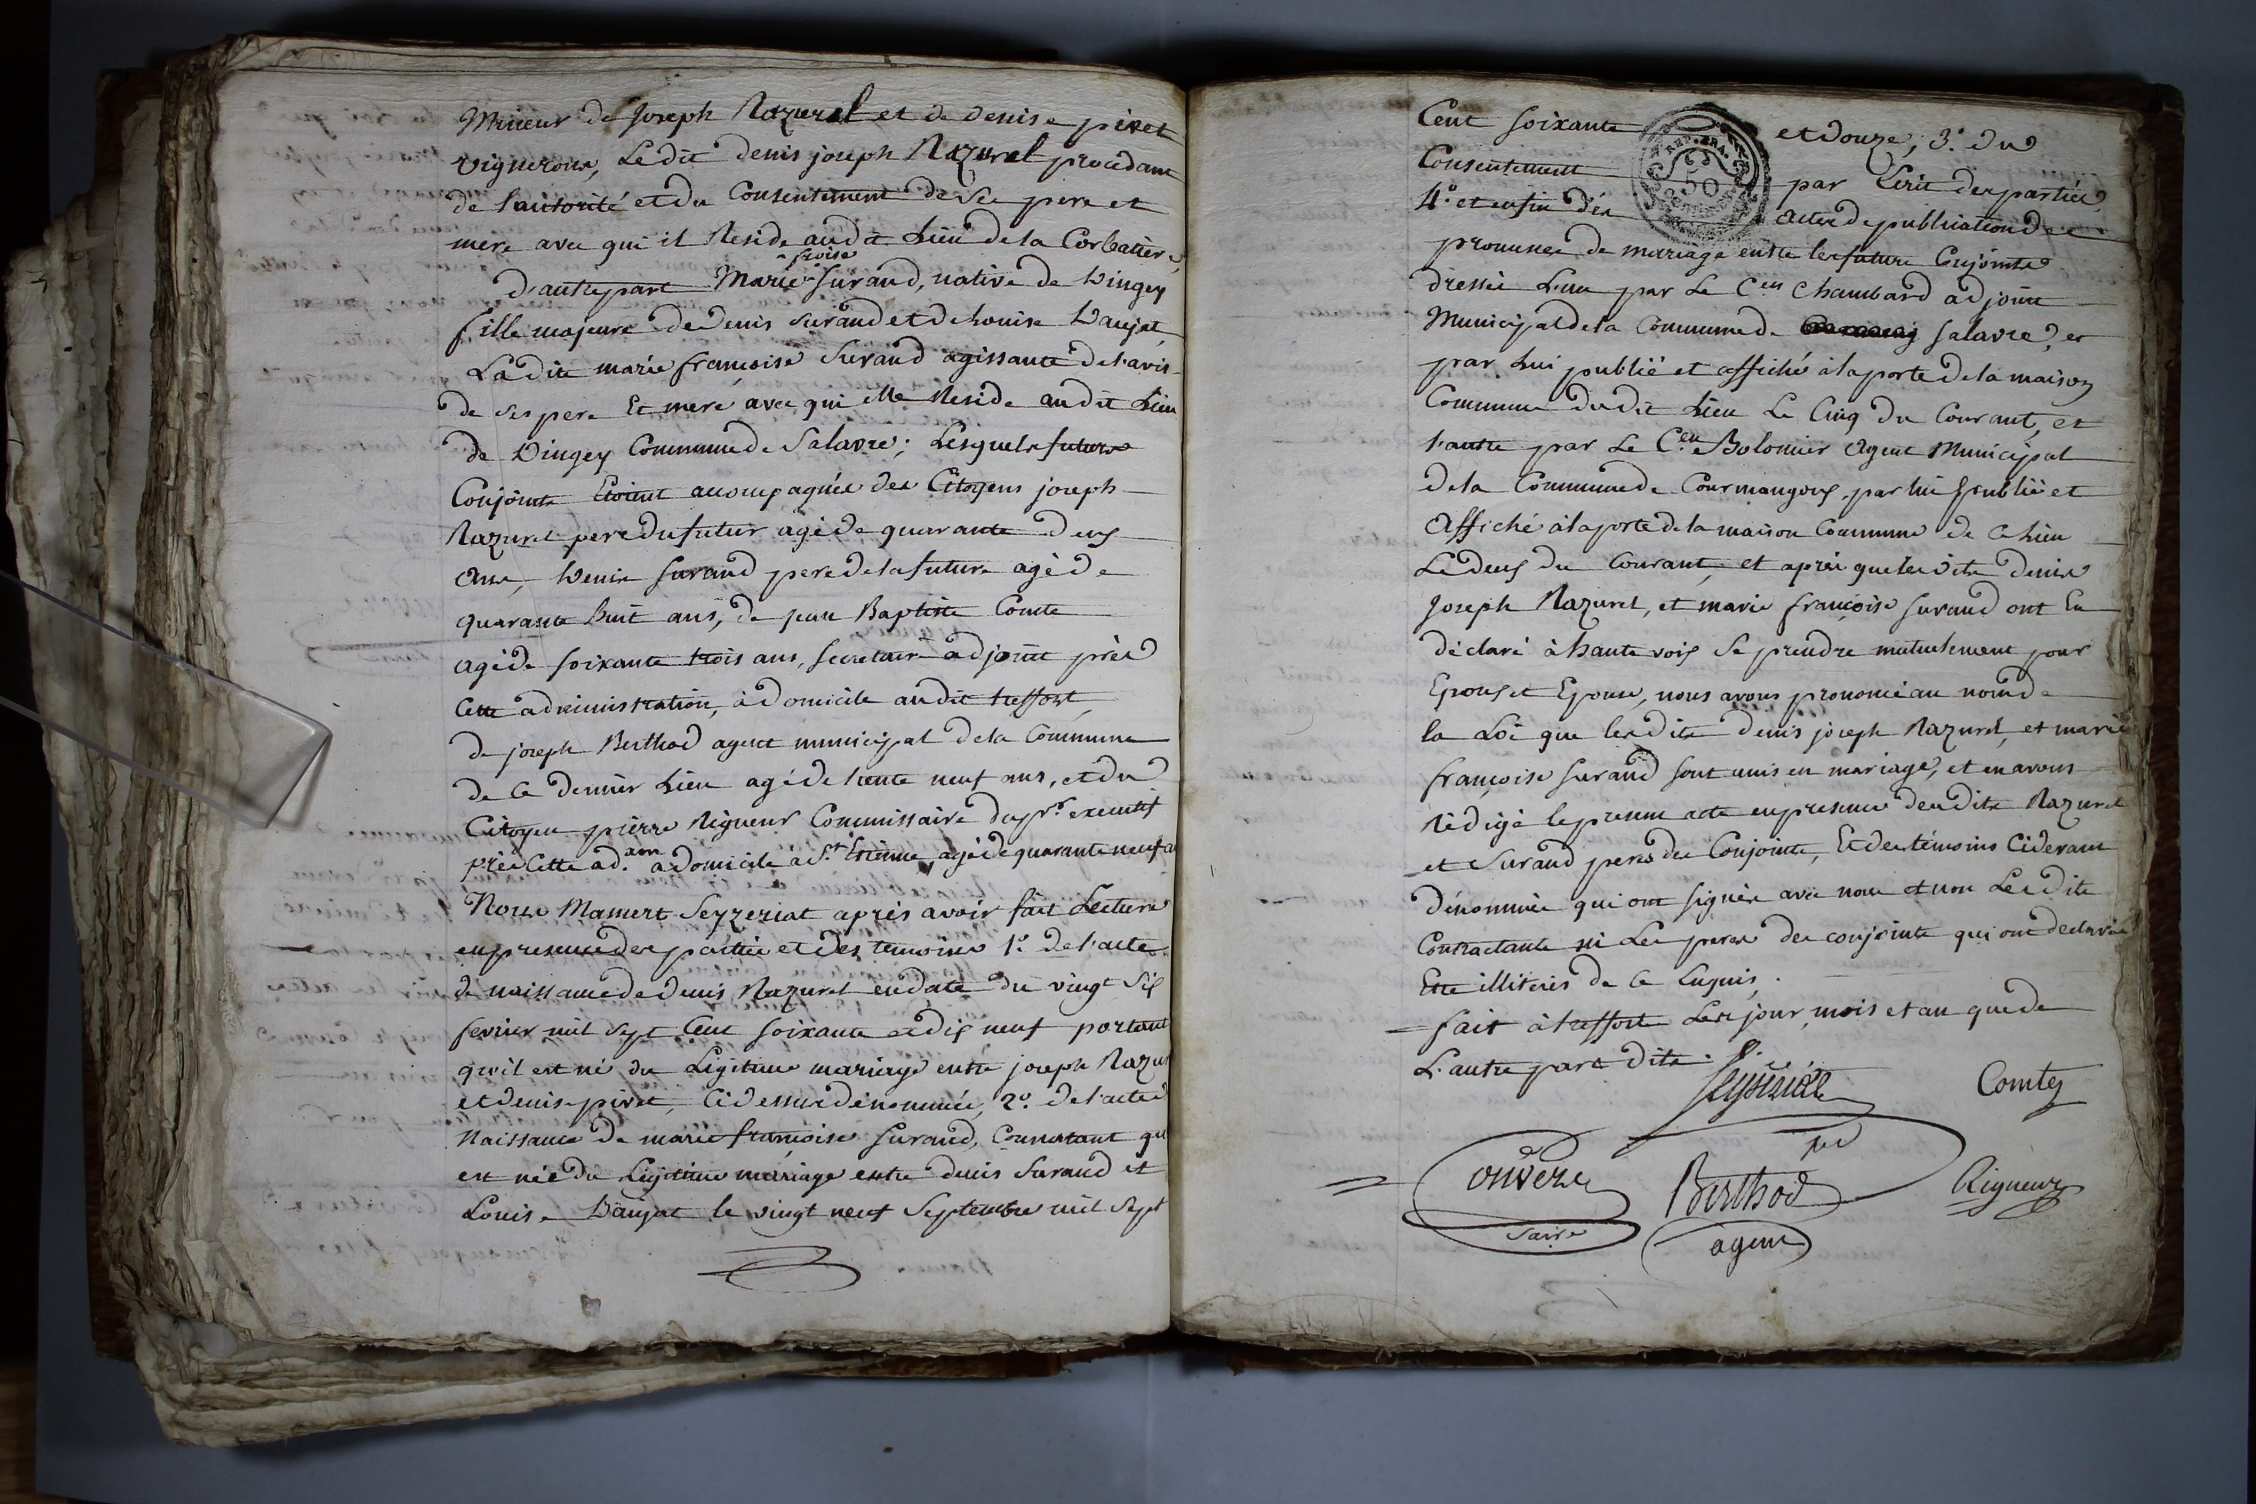 Mineur de Joseph Nazurel et de denise pivet
vignerons, Ledit denis joseph Nazurel procedant
de l'autorité et du Consentement de ses pere et
mere avec qui il Reside audit Lieu de la Corbatiere,
d'autre part Marie françoise Surand, native de Dingey
fille majeure de Denis Surand et de Louise Daujat
Ladite marie françoise Surand agissante de l'avis
de ses pere Et mere avec qui elle Reside audit Lieu
de Dingey Commune de Salavre; Lesquels futurs
Conjoints Etoient accompagnés des Citoyens joseph
Nazurel pere du futur agé de quarante deux
ans, Denis Surand pere de la future agé de
quarante huit ans, de jean Baptiste Comte
agé de soixante trois ans, secretaire adjoint près
Cette administration, à domicile audit treffort,
de joseph Berthod agent municipal de la Commune
de Ce dernier Lieu agé de trente neuf ans, et du
Citoyen pierre Rigueur Commissaire du pr. executif
près Cette ad.aon a domicile à St Etienne agé de quarante neuf a
Nous Mamert Seyzeriat après avoir fait Lecture
en presence des parties et des temoins 1.° de l'acte
de naissance de Denis Nazurel en date du vingt Six
fevrier mil sept Cent soixante et dix neuf portant
qu'il est né du Legitime mariage entre joseph Nazu
et denise pivet, Cidessus dénommés, 2.° de l'acte d
Naissance de marie françoise Surand, Constatant qu
est née du Legitime mariage entre denis Surand et
Louise Daujat le vingt neuf Septembre mil Sept
Cent soixante et douze; 3.° du
Consentement par Ecrit des parties
4.° et enfin des actes de publication de
promesse de mariage entre les futurs Conjoints
dressés L'un par Le C.en Chambard adjoint
Municipal de la Commune de Salavre, et
par Lui publié et affiché à la porte de la maison
Commune dudit Lieu Le Cinq du Courant, et
l'autre par Le C.en Bolomier Agent Municipal
de la Commune de Courmangoux par lui publié et
Affiché à la porte de la maison Commune de Ce Lieu
Le deux du Courant, et après que lesdits denis
Joseph Nazurel, et marie françoise Surand ont Eu
déclaré à haute voix se prendre mutuelement pour
Epoux et Epouse, nous avons prononcé au nom de
la Loi que lesdits denis joseph Nazurel, et marie
françoise Surand sont unis en mariage, et en avons
Rédigé le present acte en presence desdits Nazurel
et Surand peres des Conjoints, Et des témoins Cidevant
dénommés qui ont signés avec nous et non Lesdits
Contractants ni Les peres des conjoints qui ont declarés
Etre illiterés de Ce Enquis.
fait à treffort Les jour, mois et an que de
L'autre part dits.
Seyzeriat Comte
pd
onvere Berthod Rigueur
agent
REP. FRA.
50